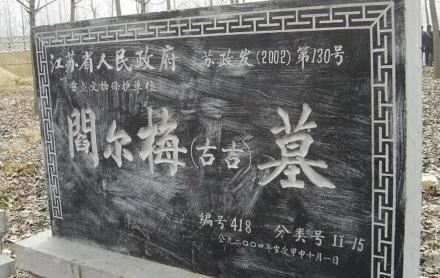 江苏省人民政府 苏政发(2002)第130号
重点文物保护单位
閻尔梅(古古)墓
编号418 分类号II-15
公元二〇〇四年岁次甲申十月一日